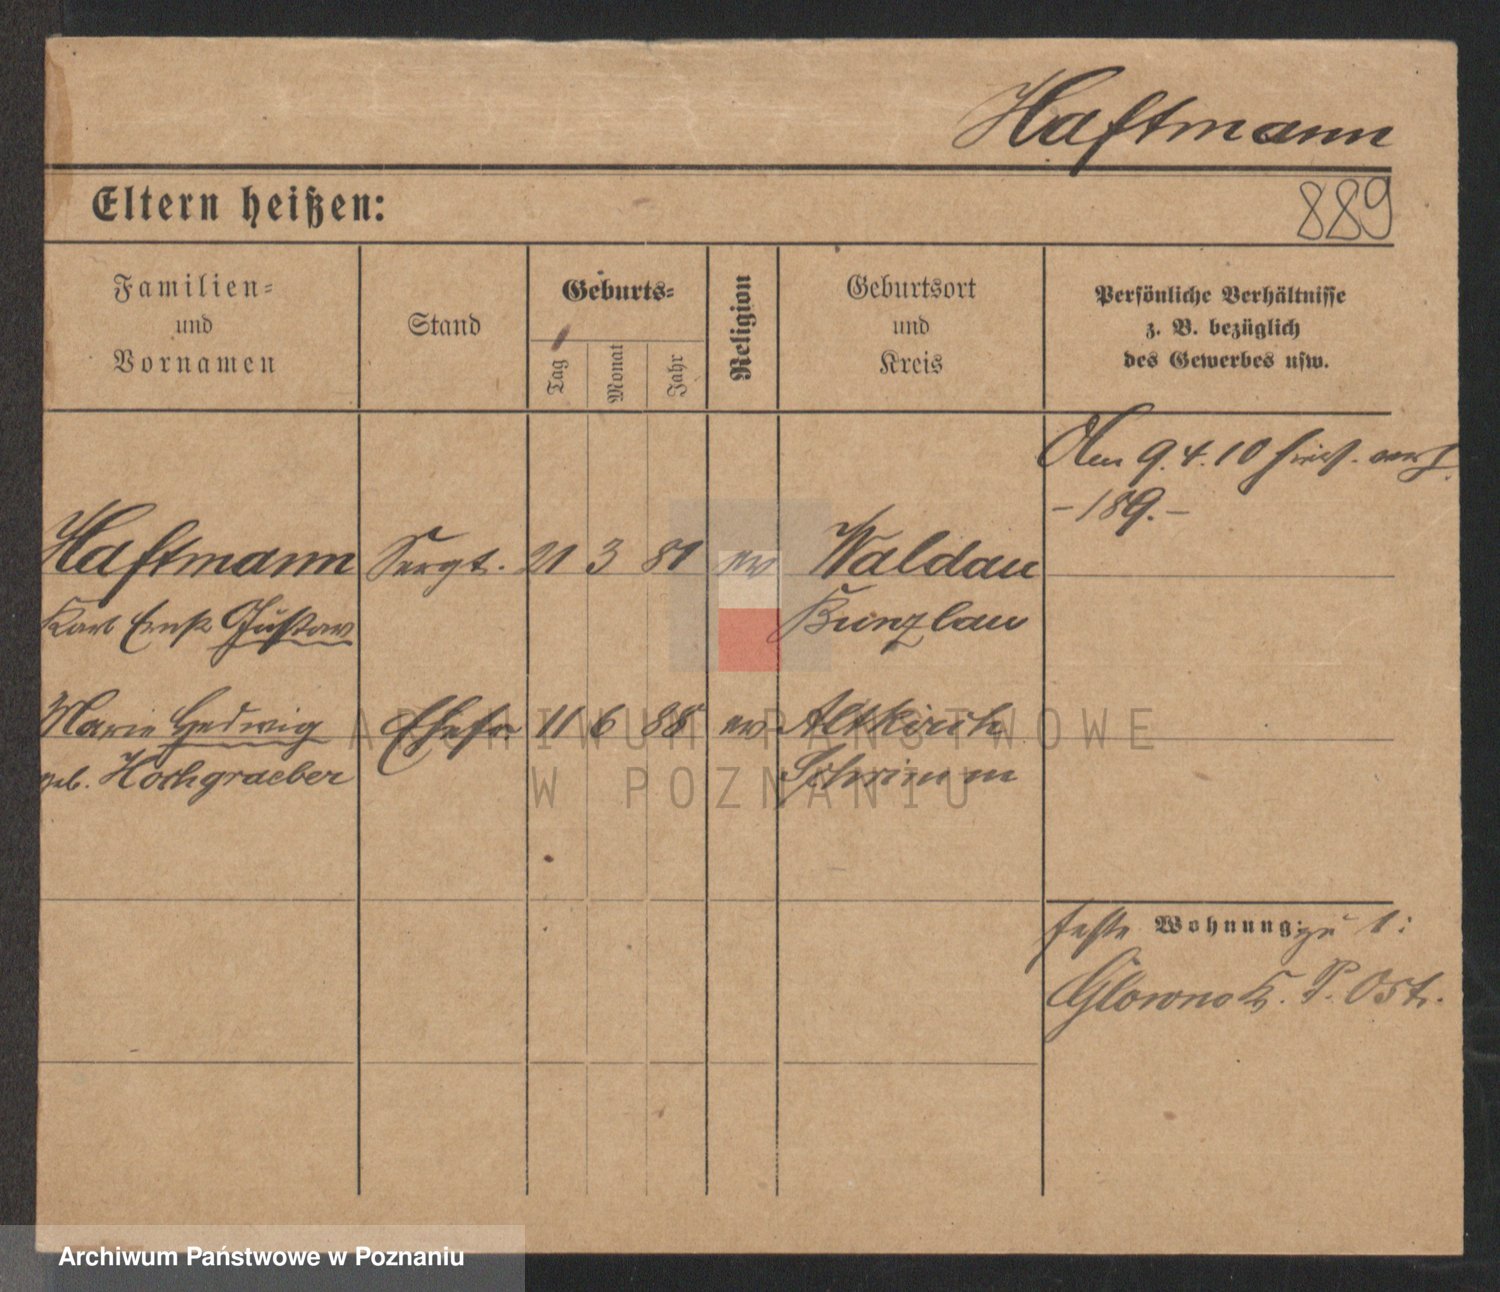 Haftmann
889
Eltern heißen:
Familien=
und
Vornamen
Stand
Geburts=
Tag
Monat
Jahr
Religion
Geburtsort
und
Kreis
Persönliche Verhältnisse
z. B. bezüglich
des Gewerbes usw.
Am 9.4.10
-189.-
Haftmann Sergt. 21 3 81 ev Waldau
Karl Ernst Gustav Bunzlau
Marie Hedwig Ehefr. 11 6 88 ev Altkirch
geb. Hochgraeber Schrimm
feste Wohnung: zu 1:
Glowno K. P. Ost.
ARCHIWUM PAŃSTWOWE
W POZNANIU
Archiwum Państwowe w Poznaniu